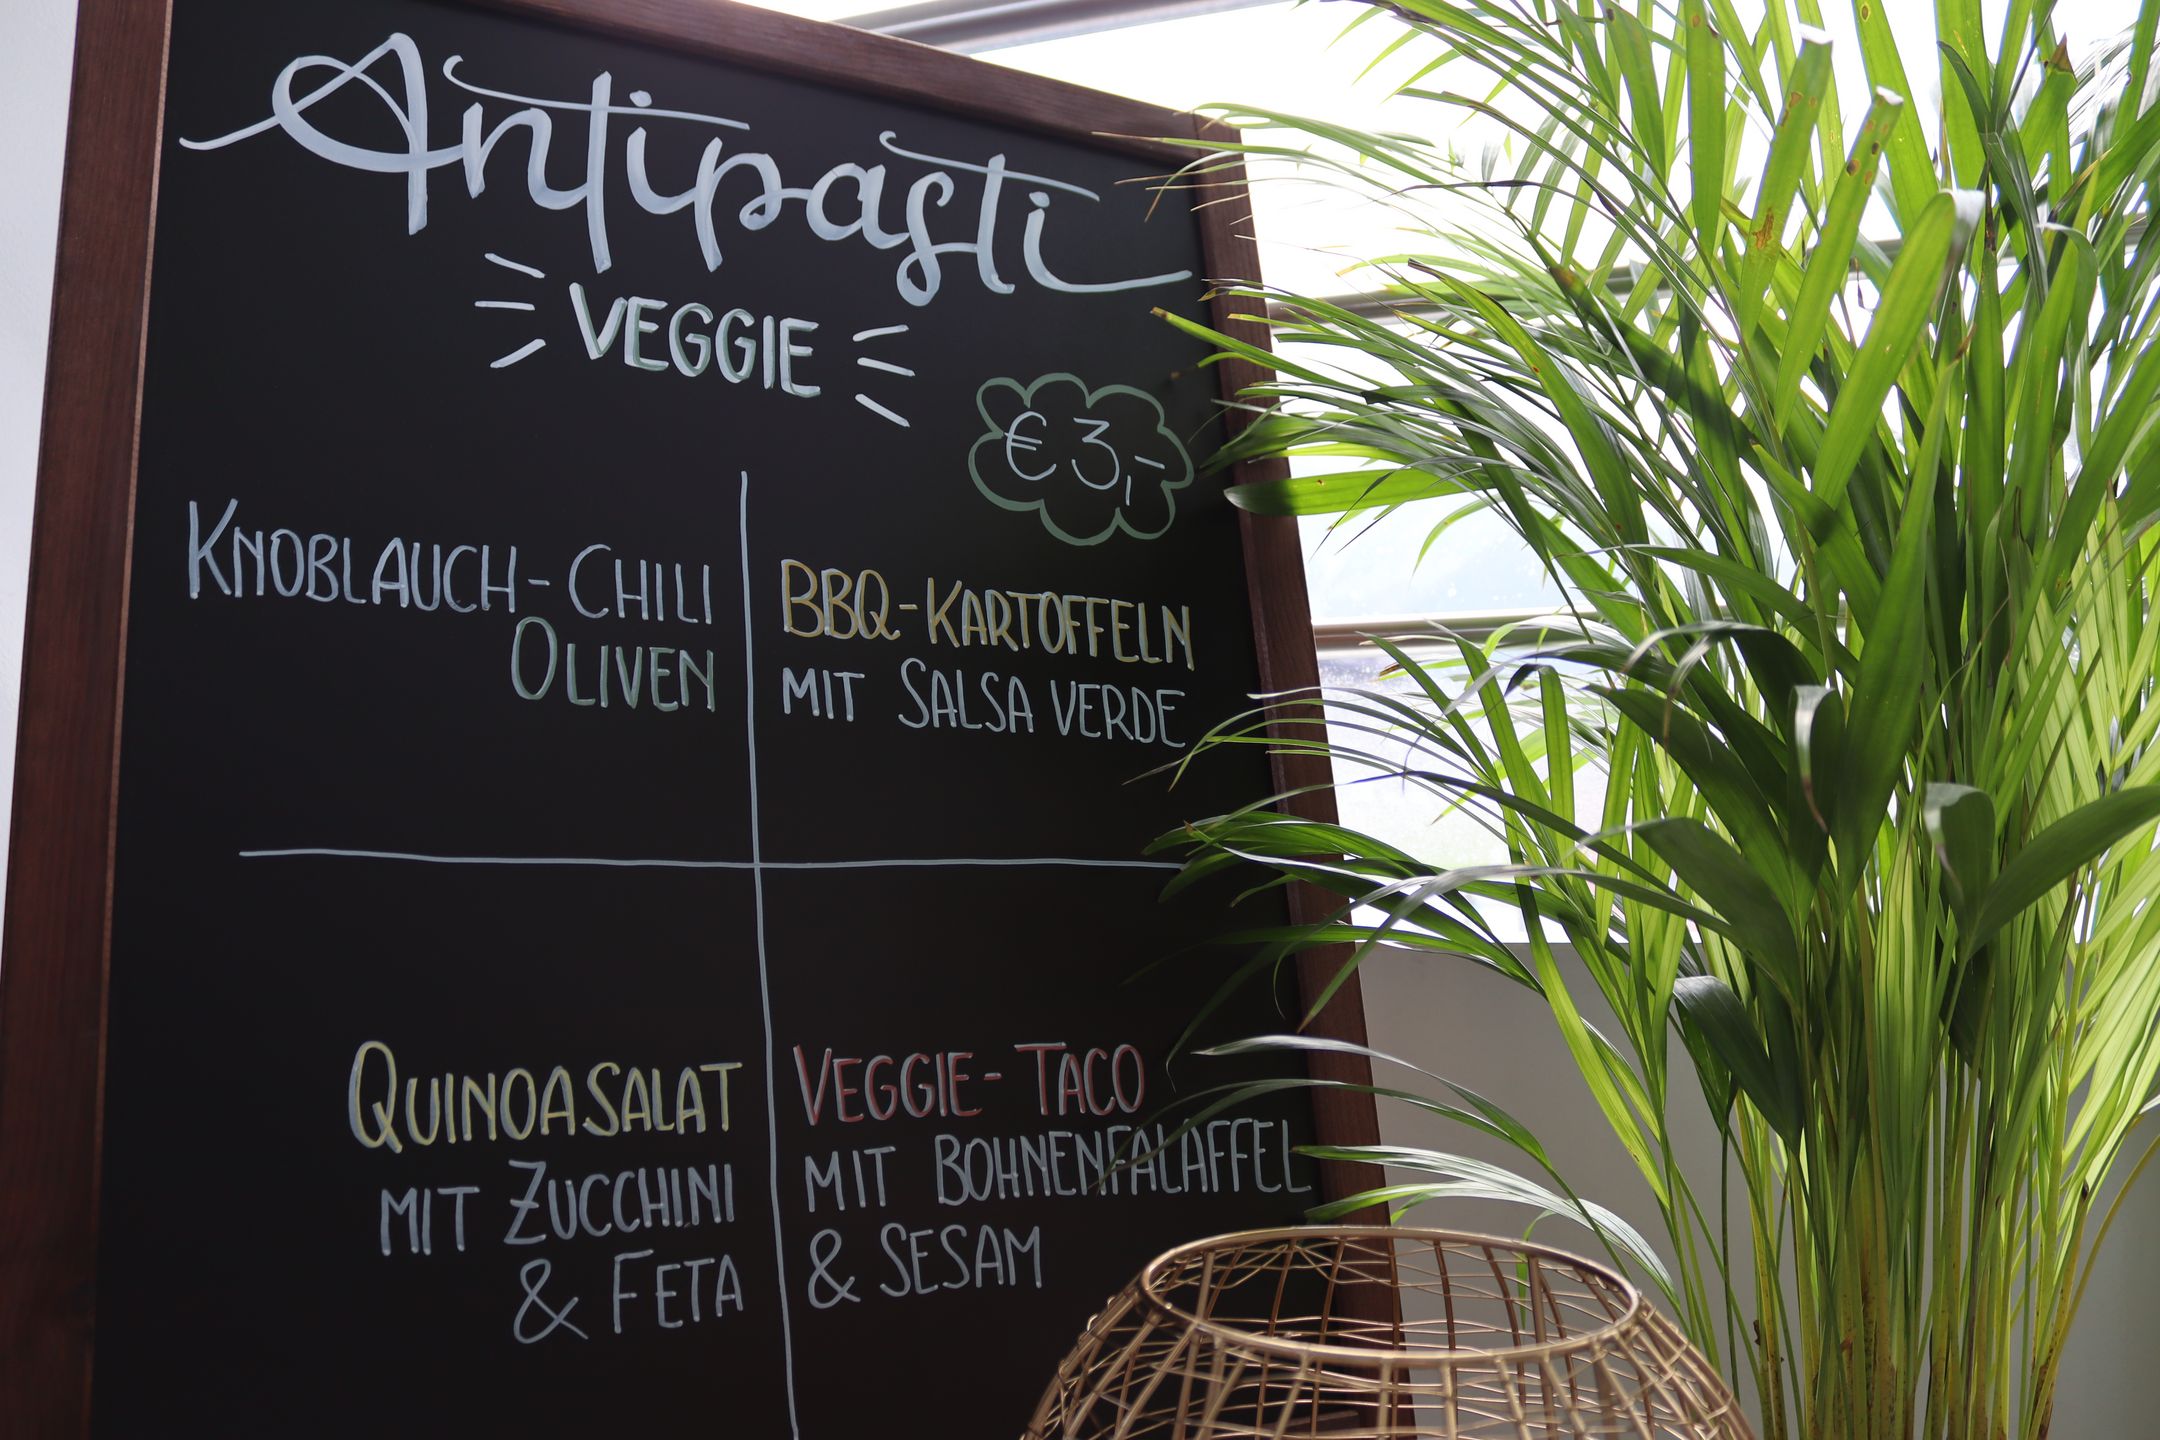 Antipasti
VEGGIE
€ 3,-
KNOBLAUCH-CHILI
OLIVEN
BBQ-KARTOFFELN
MIT SALSA VERDE
QUINOASALAT
MIT ZUCCHINI
& FETA
VEGGIE-TACO
MIT BOHNENFALAFFEL
& SESAM